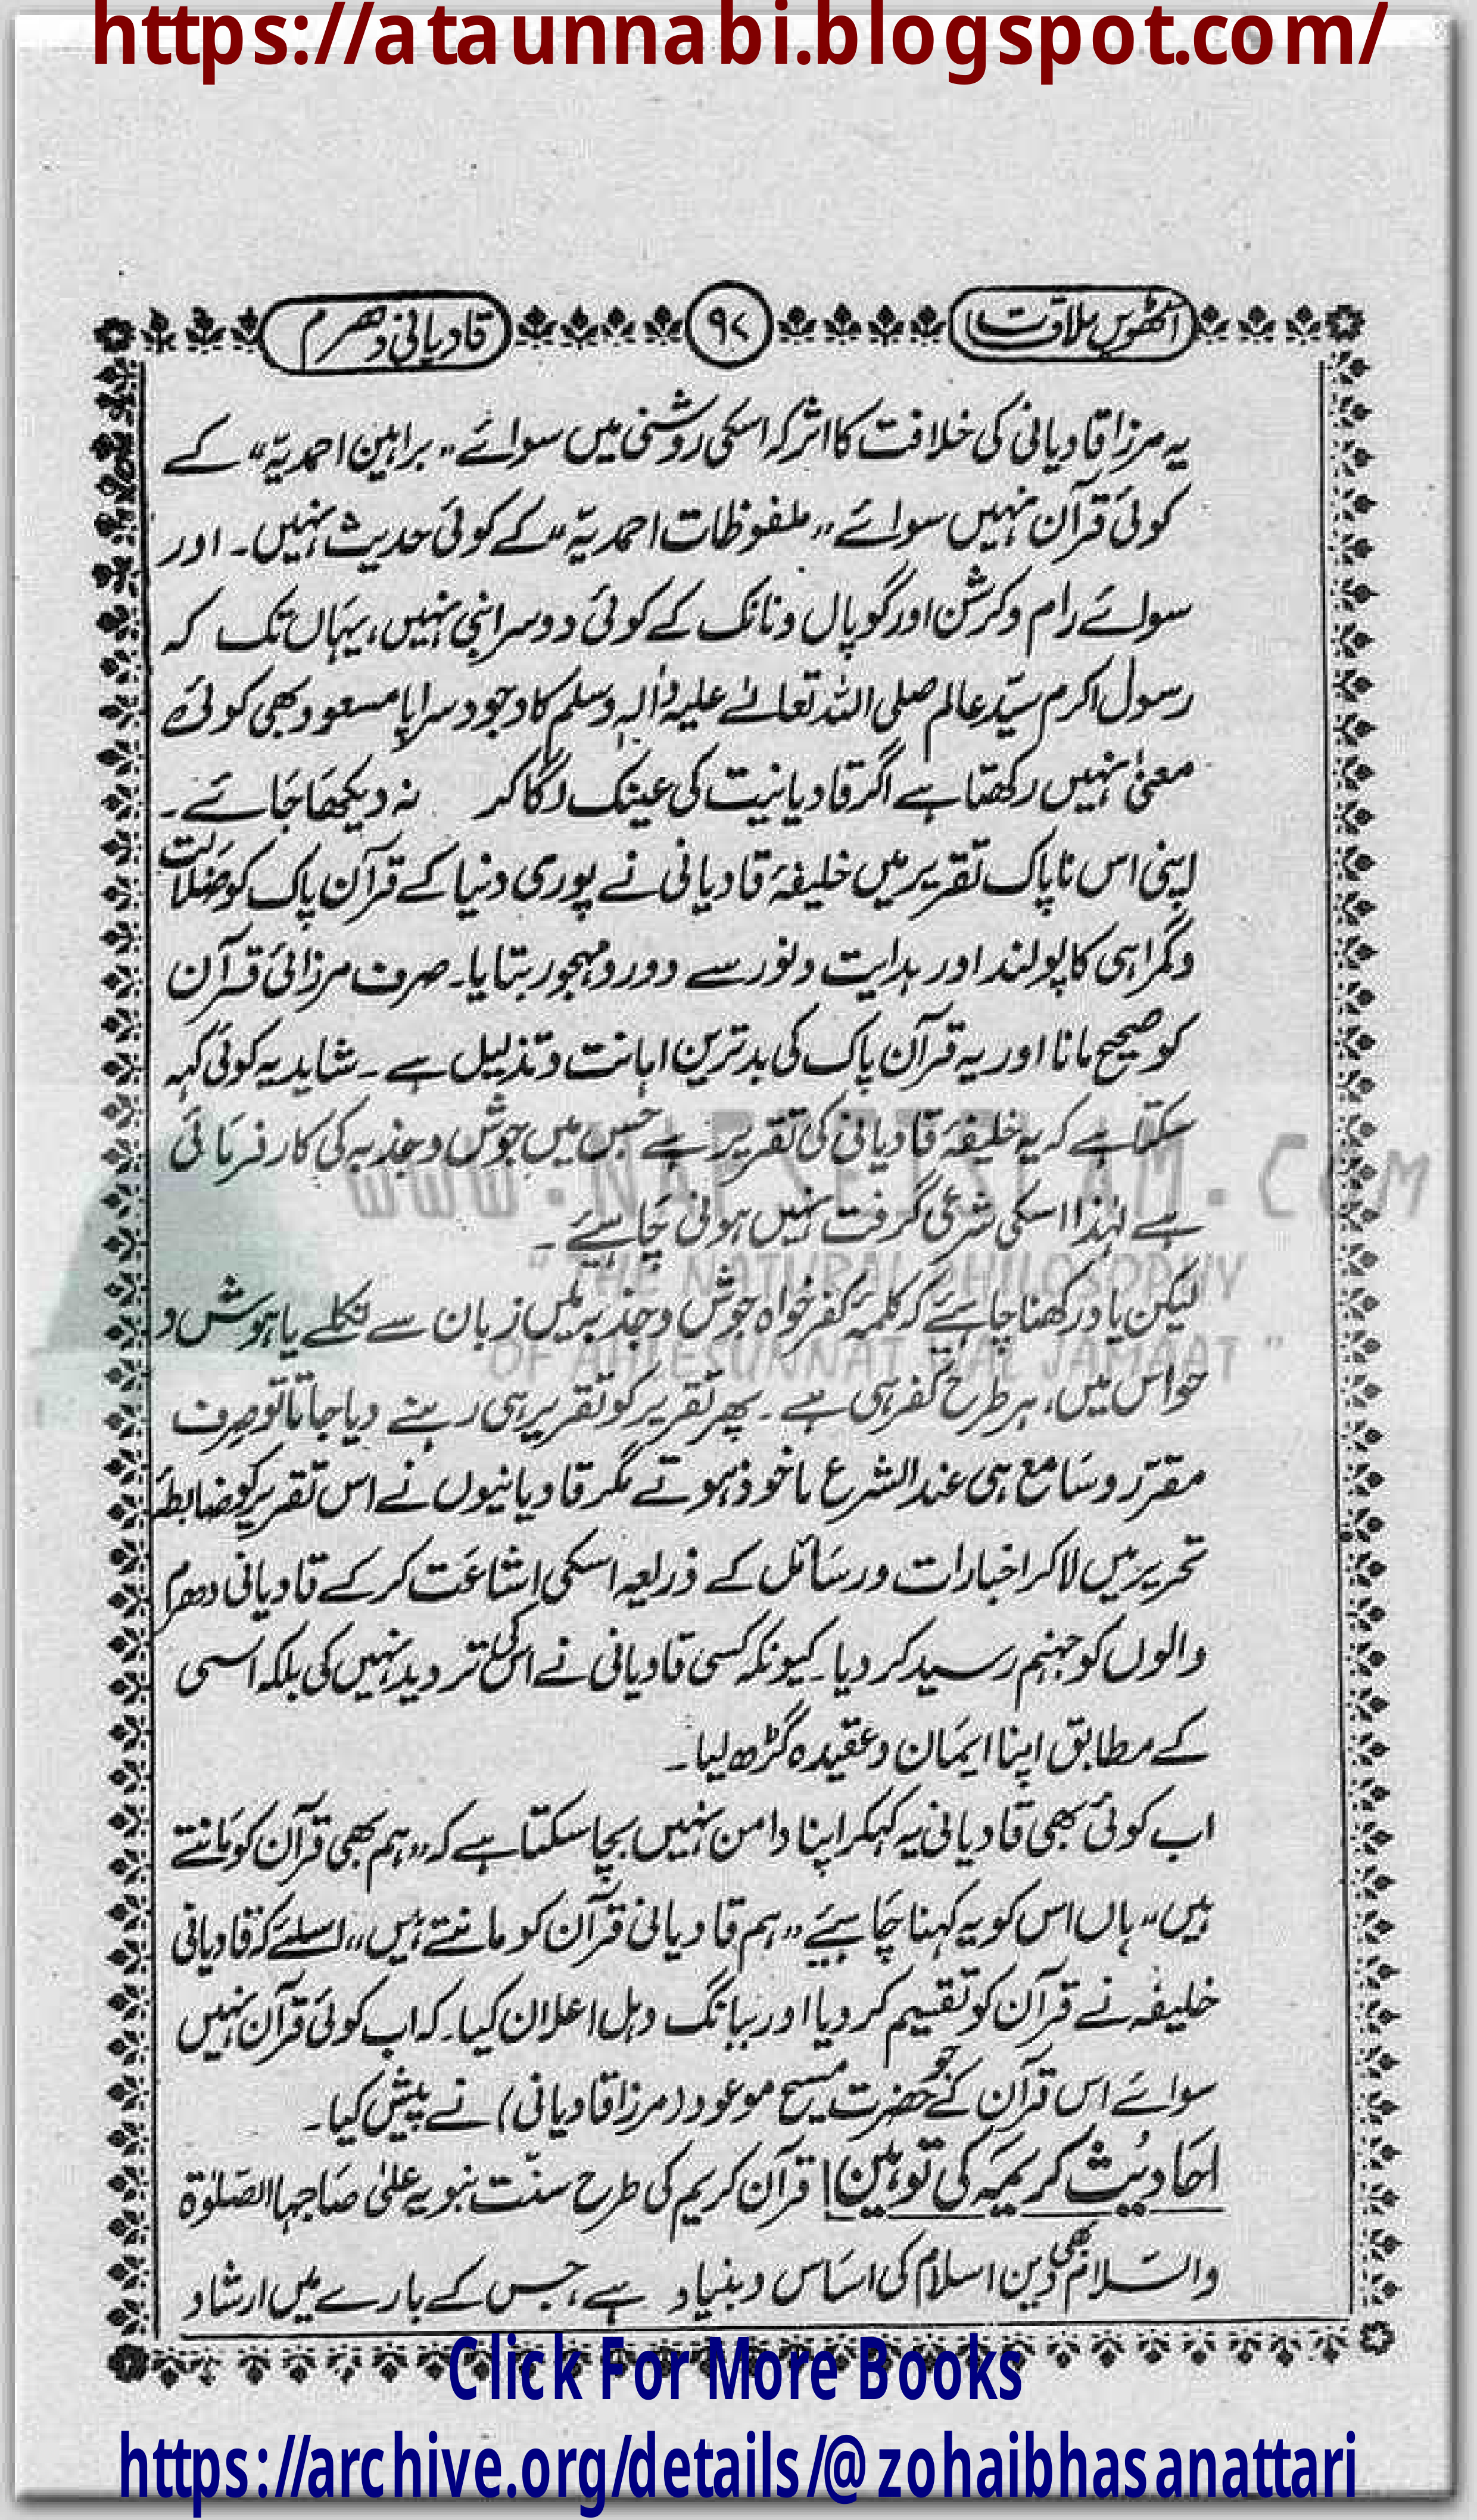 https://ataunnabi.blogspot.com/
آٹھویں ملاقت
۹۷
قادیانی دھرم
یہ مرزا قادیانی کی خلافت کا اثر کہ اسکی روشنی میں سوائے ”براہین احمدیہ“ کے
کوئی قرآن نہیں سوائے ”ملفوظات احمدیہ“ کے کوئی حدیث نہیں۔ اور
سوائے رام و کرشن اور گوپال و نانک کے کوئی دوسرا نبی نہیں، یہاں تک کہ
رسول اکرم سیّد عالم صلی اللہ تعالےٰ علیہ واٰلہٖ وسلم کا وجود سراپا مسعود بھی کوئی
معنیٰ نہیں رکھتا ہے اگر قادیانیت کی عینک لگا کر نہ دیکھا جائے۔
اپنی اس ناپاک تقریر میں خلیفۂ قادیانی نے پوری دنیا کے قرآن پاک کو ضلالت
و گمراہی کا پولندا اور ہدایت و نور سے دور و مہجور بتایا۔ صرف مرزائی قرآن
کو صحیح مانا اور یہ قرآن پاک کی بدترین اہانت و تذلیل ہے۔ شاید یہ کوئی کہہ
سکتا ہے کہ یہ خلیفۂ قادیانی کی تقریر ہے جس میں جوش و جذبہ کی کارفرمائی
ہے لہٰذا اسکی شرعی گرفت نہیں ہونی چاہیئے۔
لیکن یاد رکھنا چاہئے کہ کلمۂ کفر خواہ جوش و جذبہ میں زبان سے نکلے یا ہوش و
حواس میں، ہر طرح کفر ہی ہے۔ پھر تقریر کو تقریر ہی رہنے دیا جاتا تو صرف
مقرّر و سامع ہی عند الشرع ماخوذ ہوتے مگر قادیانیوں نے اس تقریر کو ضابطۂ
تحریر میں لا کر اخبارات و رسائل کے ذریعہ اسکی اشاعت کر کے قادیانی دھرم
والوں کو جہنم رسید کر دیا۔ کیونکہ کسی قادیانی نے اس کی تردید نہیں کی بلکہ اسی
کے مطابق اپنا ایمان و عقیدہ گڑھ لیا۔
اب کوئی بھی قادیانی یہ کہکر اپنا دامن نہیں بچا سکتا ہے کہ ”ہم بھی قرآن کو مانتے
ہیں“ ہاں اس کو یہ کہنا چاہیئے ”ہم قادیانی قرآن کو مانتے ہیں“ اسلئے کہ قادیانی
خلیفہ نے قرآن کو تقسیم کر دیا اور ببانگ دہل اعلان کیا۔ کہ اب کوئی قرآن نہیں
سوائے اس قرآن کے جو حضرت مسیح موعود (مرزا قادیانی) نے پیش کیا۔
احادیث کریمہ کی توہین! قرآن کریم کی طرح سنّت نبویہ علیٰ صاحبہا الصّلوٰۃ
والسّلام بھی دین اسلام کی اساس و بنیاد ہے، جس کے بارے میں ارشاد
www.NAFSEISLAM.COM
"THE NATURAL PHILOSOPHY
OF AHLESUNNAT WAL JAMAAT"
Click For More Books
https://archive.org/details/@zohaibhasanattari